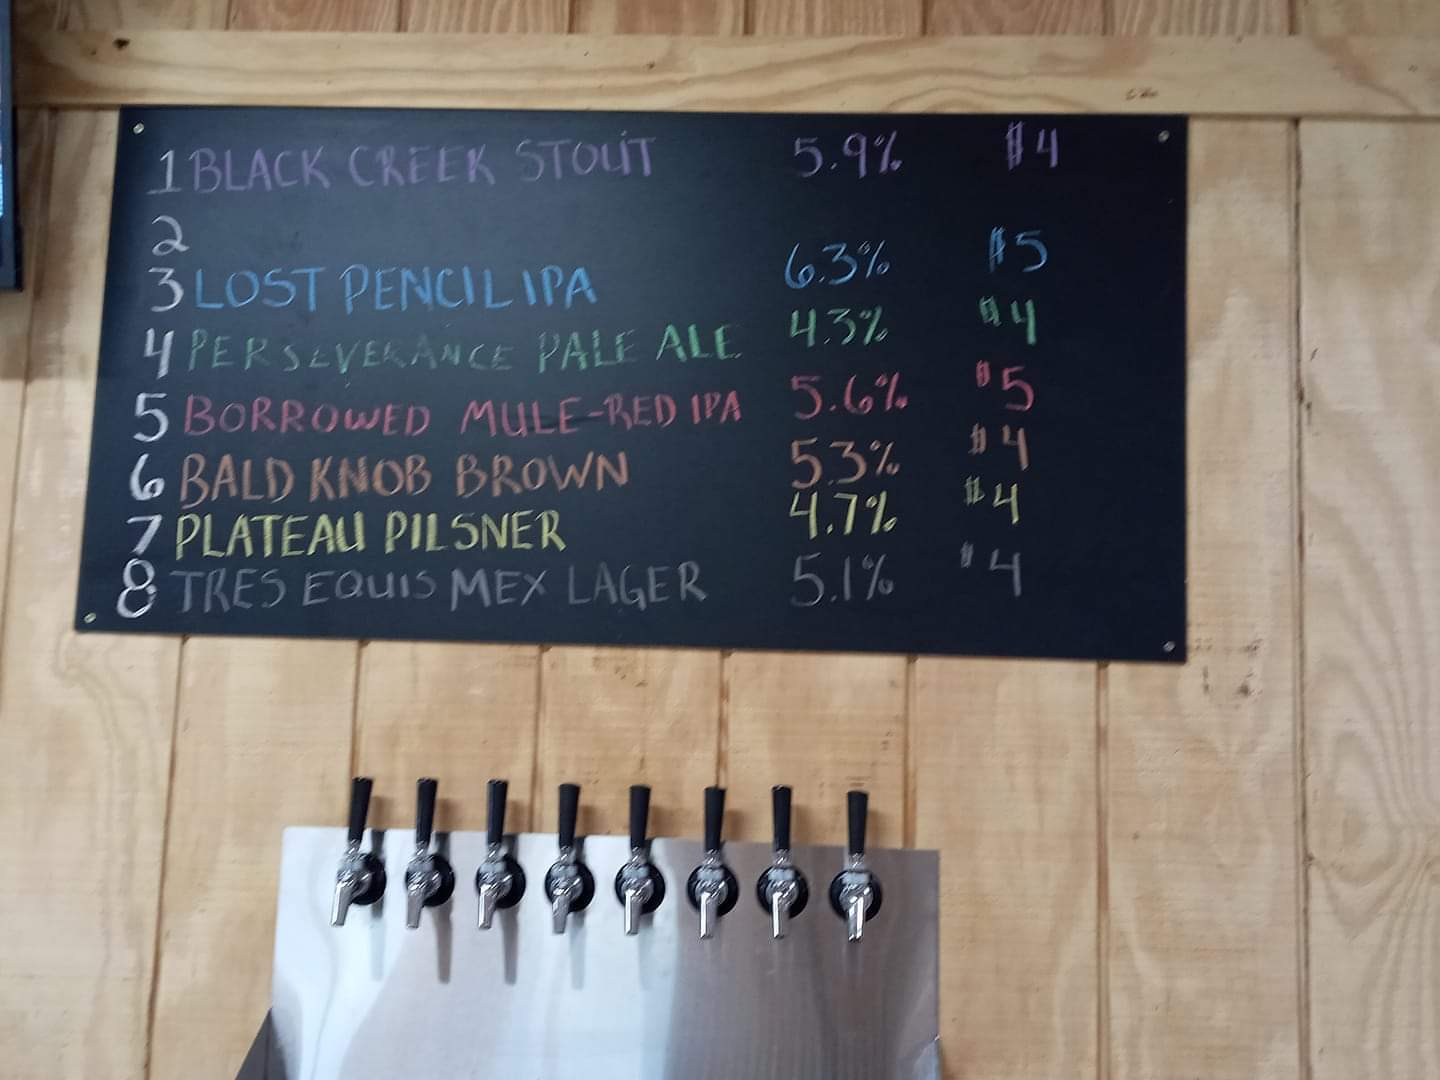 1 BLACK CREEK STOUT 5.9% $4
2
3 LOST PENCIL IPA 6.3% $5
4 PERSEVERANCE PALE ALE 4.3% $4
5 BORROWED MULE-RED IPA 5.6% $5
6 BALD KNOB BROWN 5.3% $4
7 PLATEAU PILSNER 4.7% $4
8 TRES EQUIS MEX LAGER 5.1% $4